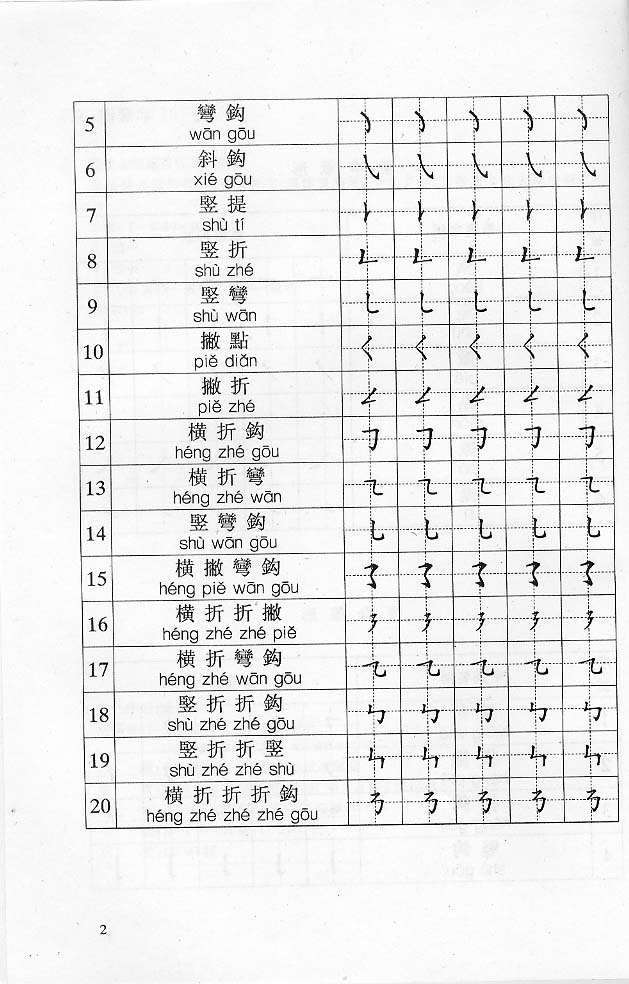 5
彎 鈎
wān gōu
6
斜 鈎
xié gōu
7
竪 提
shù tí
8
竪 折
shù zhé
9
竪 彎
shù wān
10
撇 點
piě diǎn
11
撇 折
piě zhé
12
橫 折 鈎
héng zhé gōu
13
橫 折 彎
héng zhé wān
14
竪 彎 鈎
shù wān gōu
15
橫 撇 彎 鈎
héng piě wān gōu
16
橫 折 折 撇
héng zhé zhé piě
17
橫 折 彎 鈎
héng zhé wān gōu
18
竪 折 折 鈎
shù zhé zhé gōu
19
竪 折 折 竪
shù zhé zhé shù
20
橫 折 折 折 鈎
héng zhé zhé zhé gōu
2